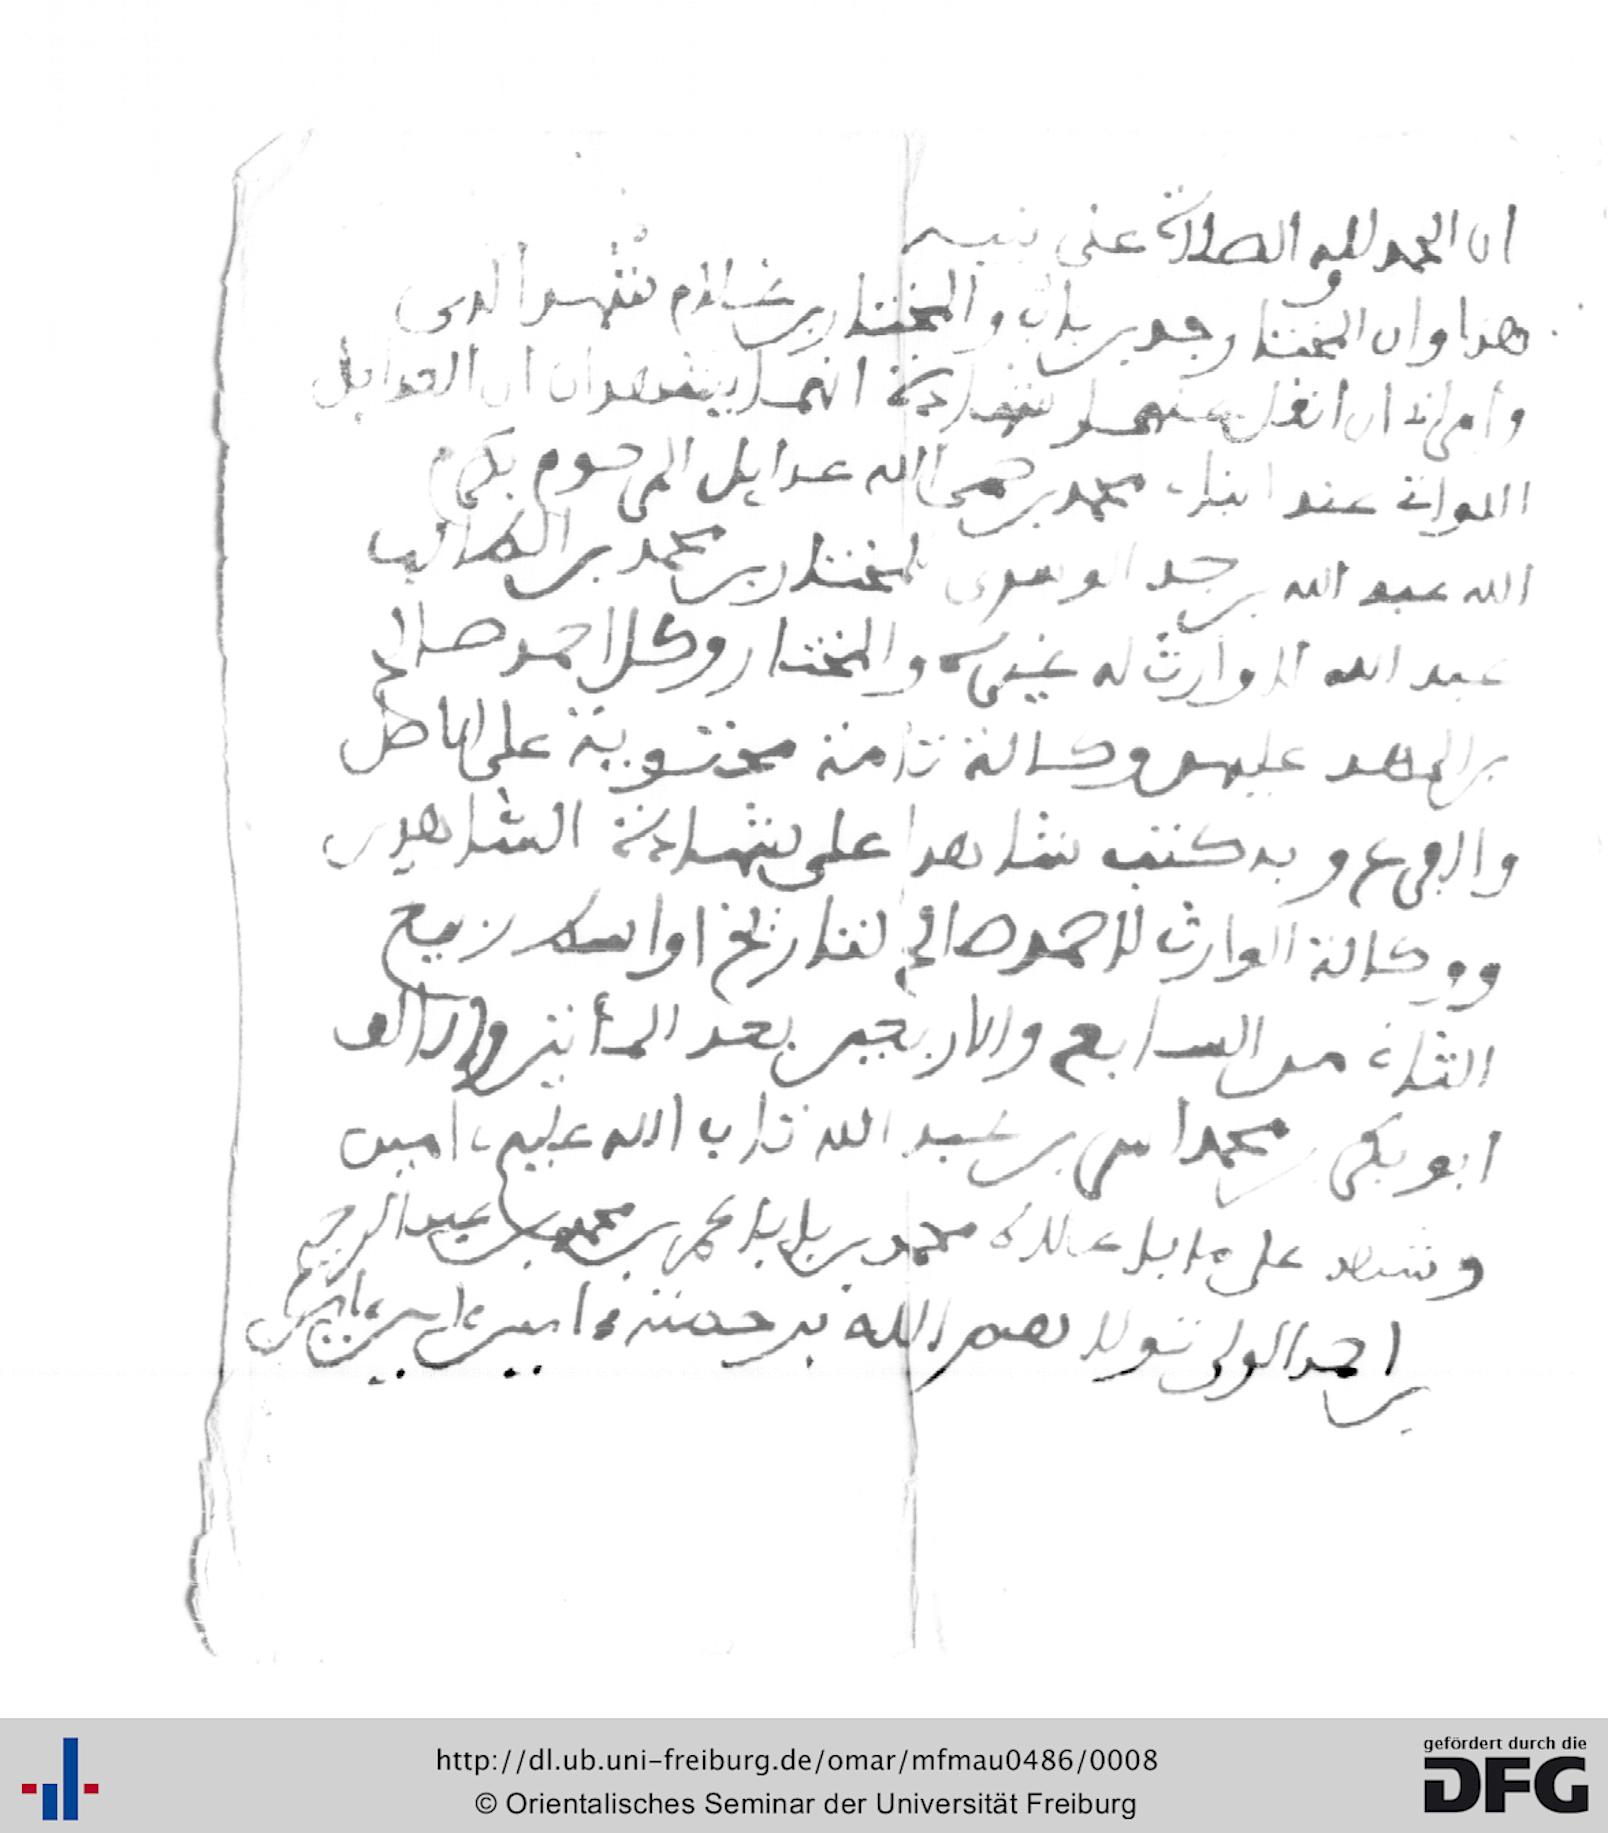 ان الحمد لله والصلاة على نبيه
هذا وان المختار وجد بن بلال والمختار بن غلام شهدا لدى
وأمراني ان انقل عنهما شهادة انهما يشهدان ان العدايل
اللواتي عند ابناء محمد بن حمى الله عدايل المرحوم بكرم
الله عبد الله بن جد الوسرى للمختار بن محمد بن الطالب
عبد الله لا وارث له غيره والمختار وكل احمد صالح
بن المهد عليهن وكالة تامة محتوية على الاصل
والفرع وبه كتب شاهدا على شهادة الشاهدين
ووكالة الوارث لاحمد صالح لتاريخ اواسط ربيع
الثان من السابع والاربعين بعد المأتين والالف
ابو بكر بن محمد اس بن عبد الله تاب الله عليهم امين
وشهد على ما بلا عالاه محمد بن بلبلا عمر بن محمد بن عبد الرحيم
بن احمد الولى تولاهم الله برحمته ءامين ءامين ءامين
http://dl.ub.uni-freiburg.de/omar/mfmau0486/0008
© Orientalisches Seminar der Universität Freiburg
gefördert durch die
DFG